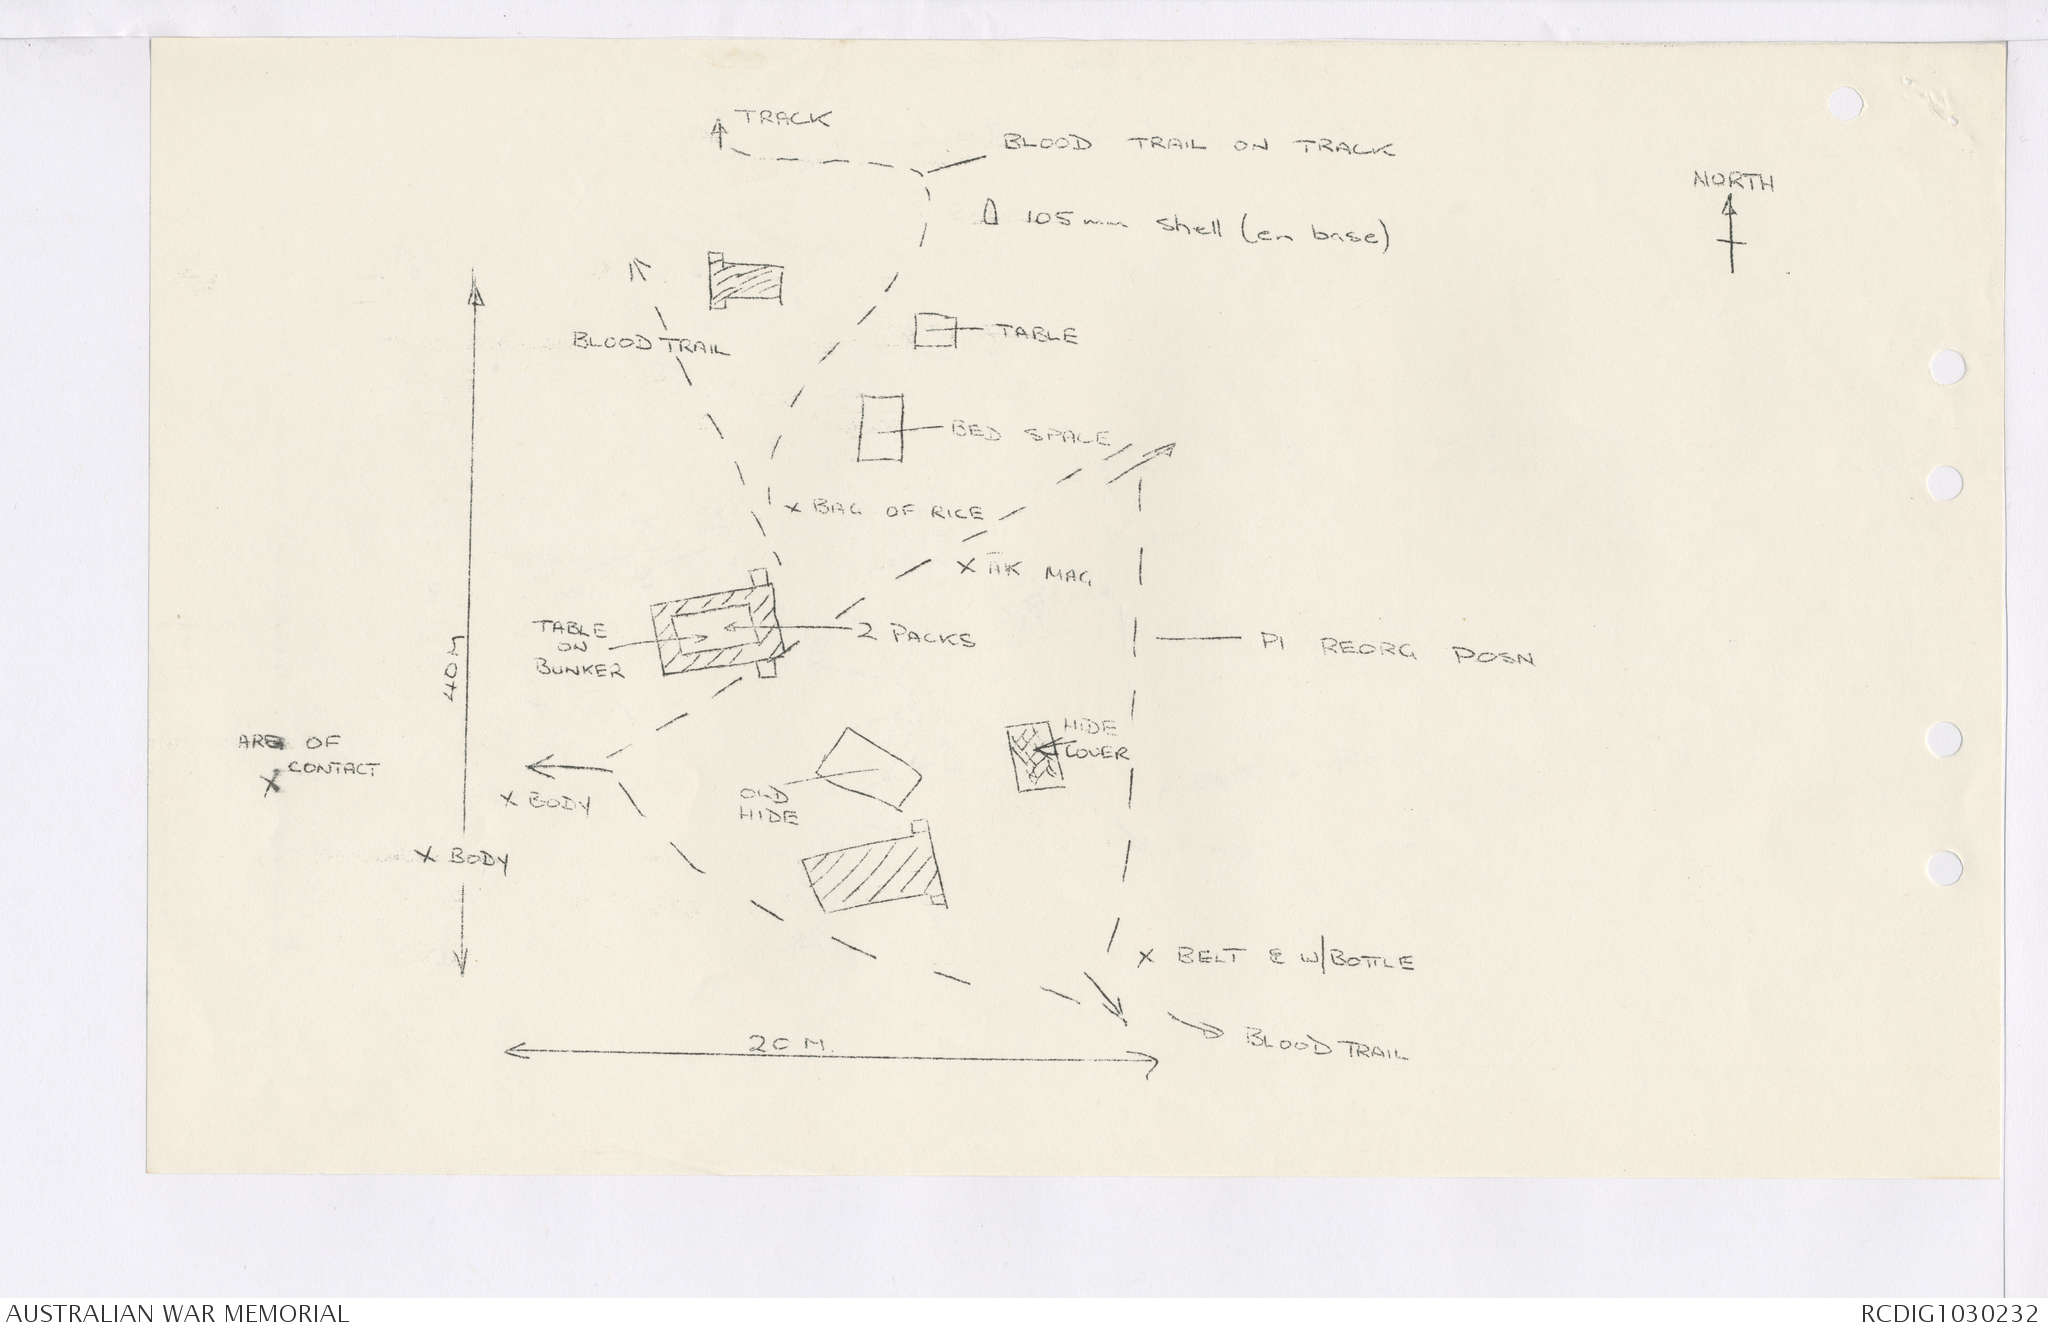 TRACK
BLOOD TRAIL ON TRACK
NORTH
105mm shell (em base)
BLOOD TRAIL
TABLE
BED SPACE
X BAG OF RICE
X AK MAG
TABLE
ON
BUNKER
2 PACKS
40M
PI REORG POSN
HIDE
COVER
AREA OF
CONTACT
X
X BODY
OLD
HIDE
X BODY
X BELT & W/BOTTLE
20 M.
BLOOD TRAIL
AUSTRALIAN WAR MEMORIAL
RCDIG1030232